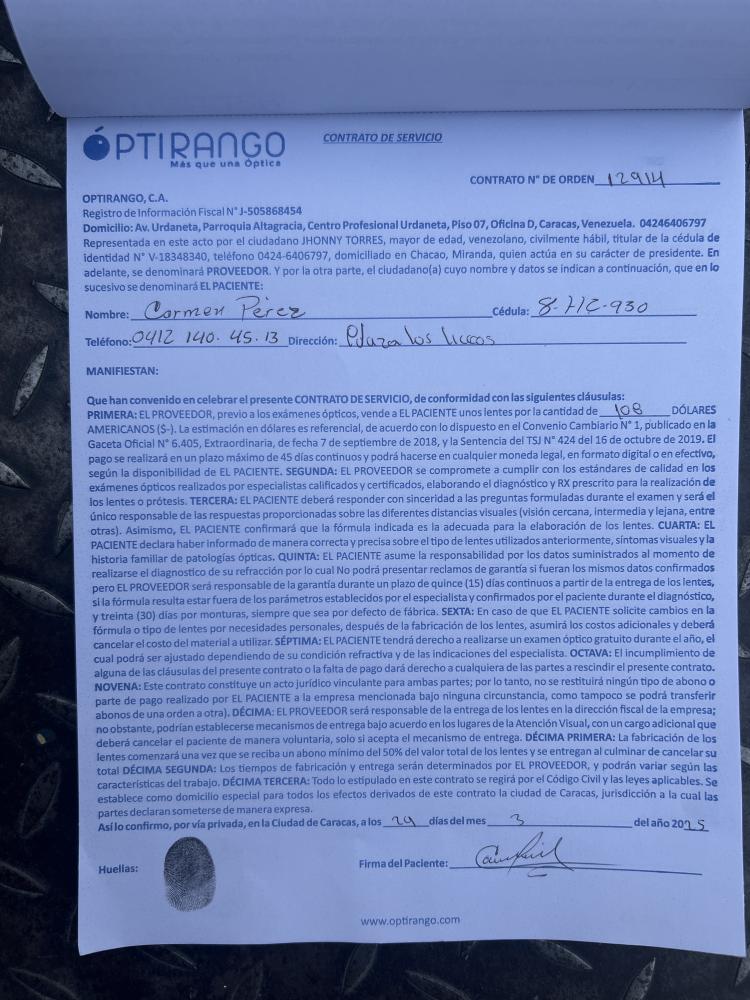 ÓPTIRANGO
Más que una Óptica
CONTRATO DE SERVICIO
CONTRATO N° DE ORDEN 12914
OPTIRANGO, C.A.
Registro de Información Fiscal N° J-505868454
Domicilio: Av. Urdaneta, Parroquia Altagracia, Centro Profesional Urdaneta, Piso 07, Oficina D, Caracas, Venezuela. 04246406797
Representada en este acto por el ciudadano JHONNY TORRES, mayor de edad, venezolano, civilmente hábil, titular de la cédula de
identidad N° V-18348340, teléfono 0424-6406797, domiciliado en Chacao, Miranda, quien actúa en su carácter de presidente. En
adelante, se denominará PROVEEDOR. Y por la otra parte, el ciudadano(a) cuyo nombre y datos se indican a continuación, que en lo
sucesivo se denominará EL PACIENTE:
Nombre: Carmen Pérez Cédula: 8-712-930
Teléfono: 0412 140.45.13 Dirección: Plaza los
MANIFIESTAN:
Que han convenido en celebrar el presente CONTRATO DE SERVICIO, de conformidad con las siguientes cláusulas:
PRIMERA: EL PROVEEDOR, previo a los exámenes ópticos, vende a EL PACIENTE unos lentes por la cantidad de 108 DÓLARES
AMERICANOS ($-). La estimación en dólares es referencial, de acuerdo con lo dispuesto en el Convenio Cambiario N° 1, publicado en la
Gaceta Oficial N° 6.405, Extraordinaria, de fecha 7 de septiembre de 2018, y la Sentencia del TSJ N° 424 del 16 de octubre de 2019. El
pago se realizará en un plazo máximo de 45 días continuos y podrá hacerse en cualquier moneda legal, en formato digital o en efectivo,
según la disponibilidad de EL PACIENTE. SEGUNDA: EL PROVEEDOR se compromete a cumplir con los estándares de calidad en los
exámenes ópticos realizados por especialistas calificados y certificados, elaborando el diagnóstico y RX prescrito para la realización de
los lentes o prótesis. TERCERA: EL PACIENTE deberá responder con sinceridad a las preguntas formuladas durante el examen y será el
único responsable de las respuestas proporcionadas sobre las diferentes distancias visuales (visión cercana, intermedia y lejana, entre
otras). Asimismo, EL PACIENTE confirmará que la fórmula indicada es la adecuada para la elaboración de los lentes. CUARTA: EL
PACIENTE declara haber informado de manera correcta y precisa sobre el tipo de lentes utilizados anteriormente, síntomas visuales y la
historia familiar de patologías ópticas. QUINTA: EL PACIENTE asume la responsabilidad por los datos suministrados al momento de
realizarse el diagnostico de su refracción por lo cual No podrá presentar reclamos de garantía si fueran los mismos datos confirmados
pero EL PROVEEDOR será responsable de la garantía durante un plazo de quince (15) días continuos a partir de la entrega de los lentes,
si la fórmula resulta estar fuera de los parámetros establecidos por el especialista y confirmados por el paciente durante el diagnóstico,
y treinta (30) días por monturas, siempre que sea por defecto de fábrica. SEXTA: En caso de que EL PACIENTE solicite cambios en la
fórmula o tipo de lentes por necesidades personales, después de la fabricación de los lentes, asumirá los costos adicionales y deberá
cancelar el costo del material a utilizar. SÉPTIMA: EL PACIENTE tendrá derecho a realizarse un examen óptico gratuito durante el año, el
cual podrá ser ajustado dependiendo de su condición refractiva y de las indicaciones del especialista. OCTAVA: El incumplimiento de
alguna de las cláusulas del presente contrato o la falta de pago dará derecho a cualquiera de las partes a rescindir el presente contrato.
NOVENA: Este contrato constituye un acto jurídico vinculante para ambas partes; por lo tanto, no se restituirá ningún tipo de abono o
parte de pago realizado por EL PACIENTE a la empresa mencionada bajo ninguna circunstancia, como tampoco se podrá transferir
abonos de una orden a otra). DÉCIMA: EL PROVEEDOR será responsable de la entrega de los lentes en la dirección fiscal de la empresa;
no obstante, podrían establecerse mecanismos de entrega bajo acuerdo en los lugares de la Atención Visual, con un cargo adicional que
deberá cancelar el paciente de manera voluntaria, solo si acepta el mecanismo de entrega. DÉCIMA PRIMERA: La fabricación de los
lentes comenzará una vez que se reciba un abono mínimo del 50% del valor total de los lentes y se entregan al culminar de cancelar su
total DÉCIMA SEGUNDA: Los tiempos de fabricación y entrega serán determinados por EL PROVEEDOR, y podrán variar según las
características del trabajo. DÉCIMA TERCERA: Todo lo estipulado en este contrato se regirá por el Código Civil y las leyes aplicables. Se
establece como domicilio especial para todos los efectos derivados de este contrato la ciudad de Caracas, jurisdicción a la cual las
partes declaran someterse de manera expresa.
Así lo confirmo, por vía privada, en la Ciudad de Caracas, a los 29 días del mes 3 del año 2025
Huellas: Firma del Paciente:
www.optirango.com